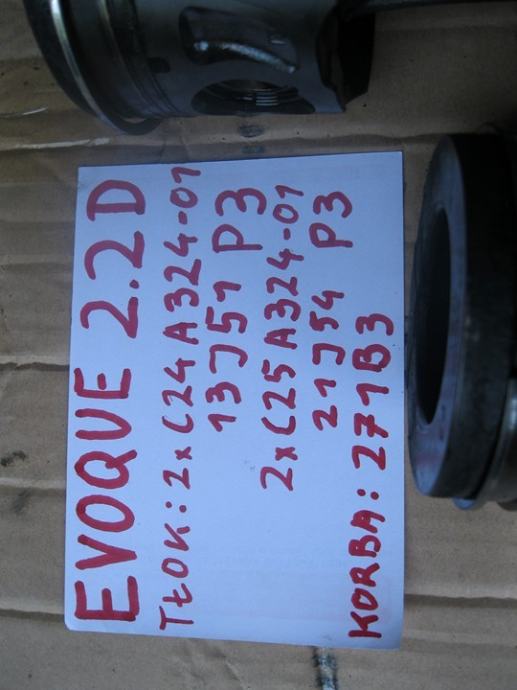 EVOQUE 2.2D
TŁOK: 2x C24A324-01
13J51 P3
2x C25A324-01
21J54 P3
KORBA: 271B3